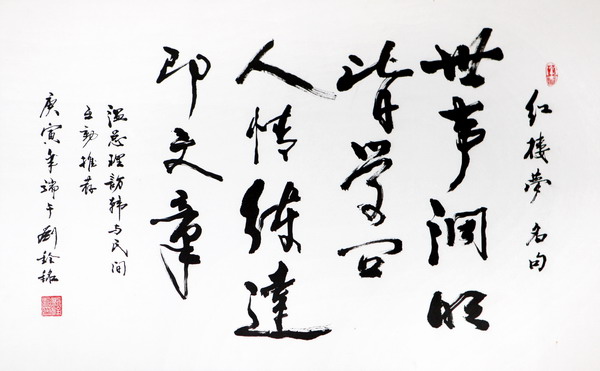 红楼梦 名句
世事洞明
皆学问
人情练达
即文章
温总理访韩与民间
互动推荐
庚寅年端午 刘铨铭